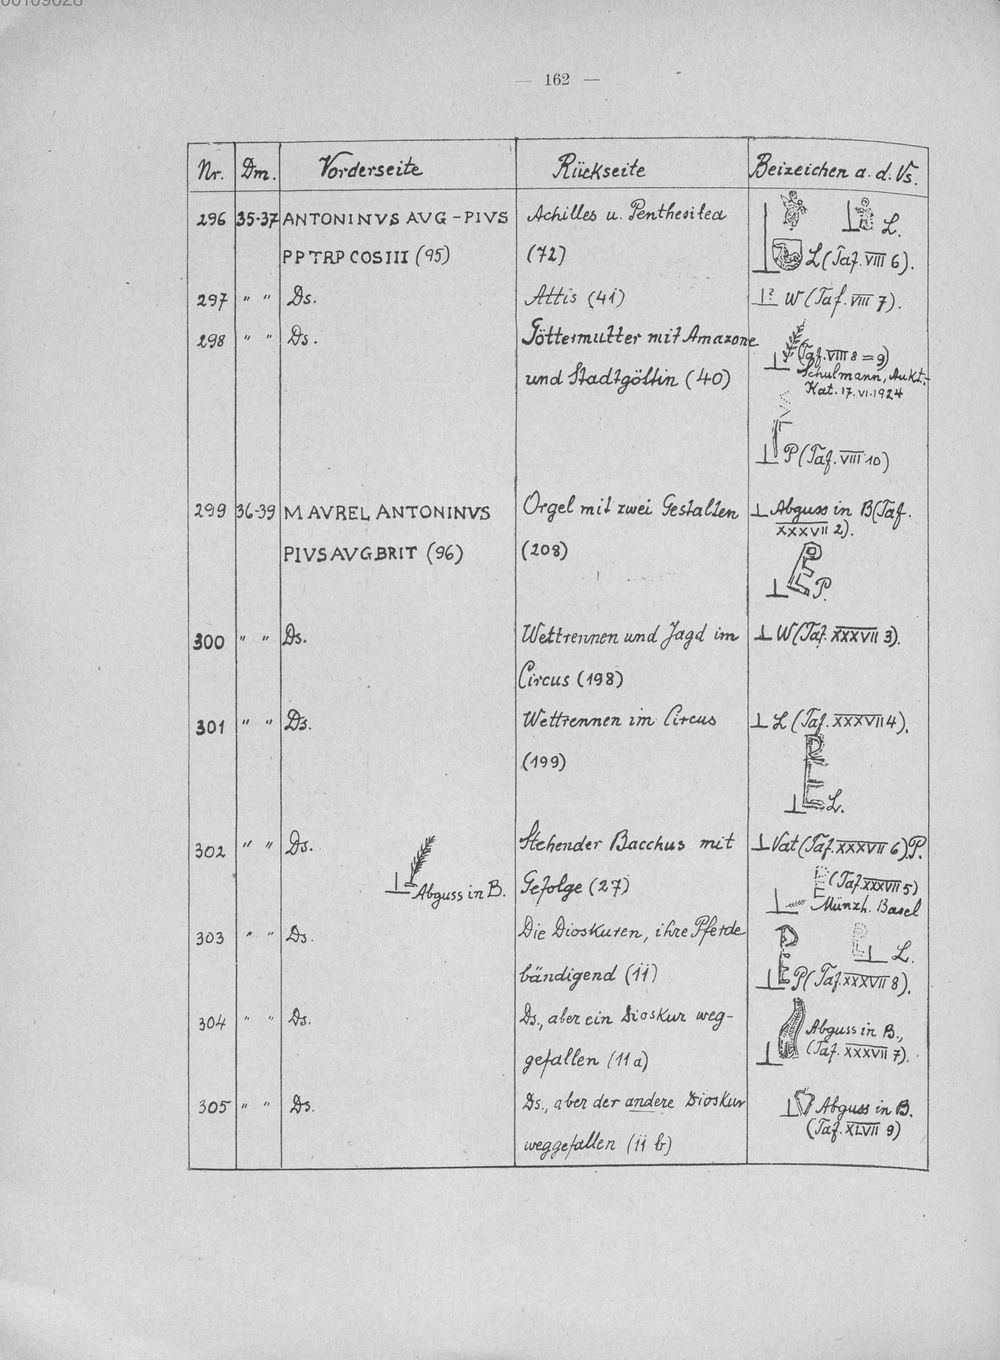 00109628
— 162 —
Nr. Dm. Vorderseite Rückseite Beizeichen a. d. Vs.
296 35-37 ANTONINVS AVG – PIVS Achilles u. Penthesilea L.
PP TRP COS III (95) (72) L (Taf. VIII 6).
297 " " Ds. Attis (41) ? W (Taf. VIII 7).
298 " " Ds. Göttermutter mit Amazone (Taf. VIII 8 = 9)
und Stadtgöttin (40) Schulmann, Aukt.-
Kat. 17.VI.1924
P (Taf. VIII 10)
299 36-39 M AVREL ANTONINVS Orgel mit zwei Gestalten Abguss in B (Taf.
PIVS AVG BRIT (96) (208) XXXVII 2).
PE P.
300 " " Ds. Wettrennen und Jagd im W (Taf. XXXVII 3).
Circus (198)
301 " " Ds. Wettrennen im Circus L (Taf. XXXVII 4).
(199)
PE L.
302 " " Ds. Stehender Bacchus mit Vat (Taf. XXXVII 6) P.
Abguss in B. Gefolge (27) E (Taf. XXXVII 5)
Münzh. Basel
303 " " Ds. Die Dioskuren, ihre Pferde PE L.
bändigend (11) P (Taf. XXXVII 8).
304 " " Ds. Ds., aber ein Dioskur weg- Abguss in B.,
gefallen (11a) (Taf. XXXVII 7).
305 " " Ds. Ds., aber der andere Dioskur Abguss in B.
weggefallen (11 b) (Taf. XLVII 9)